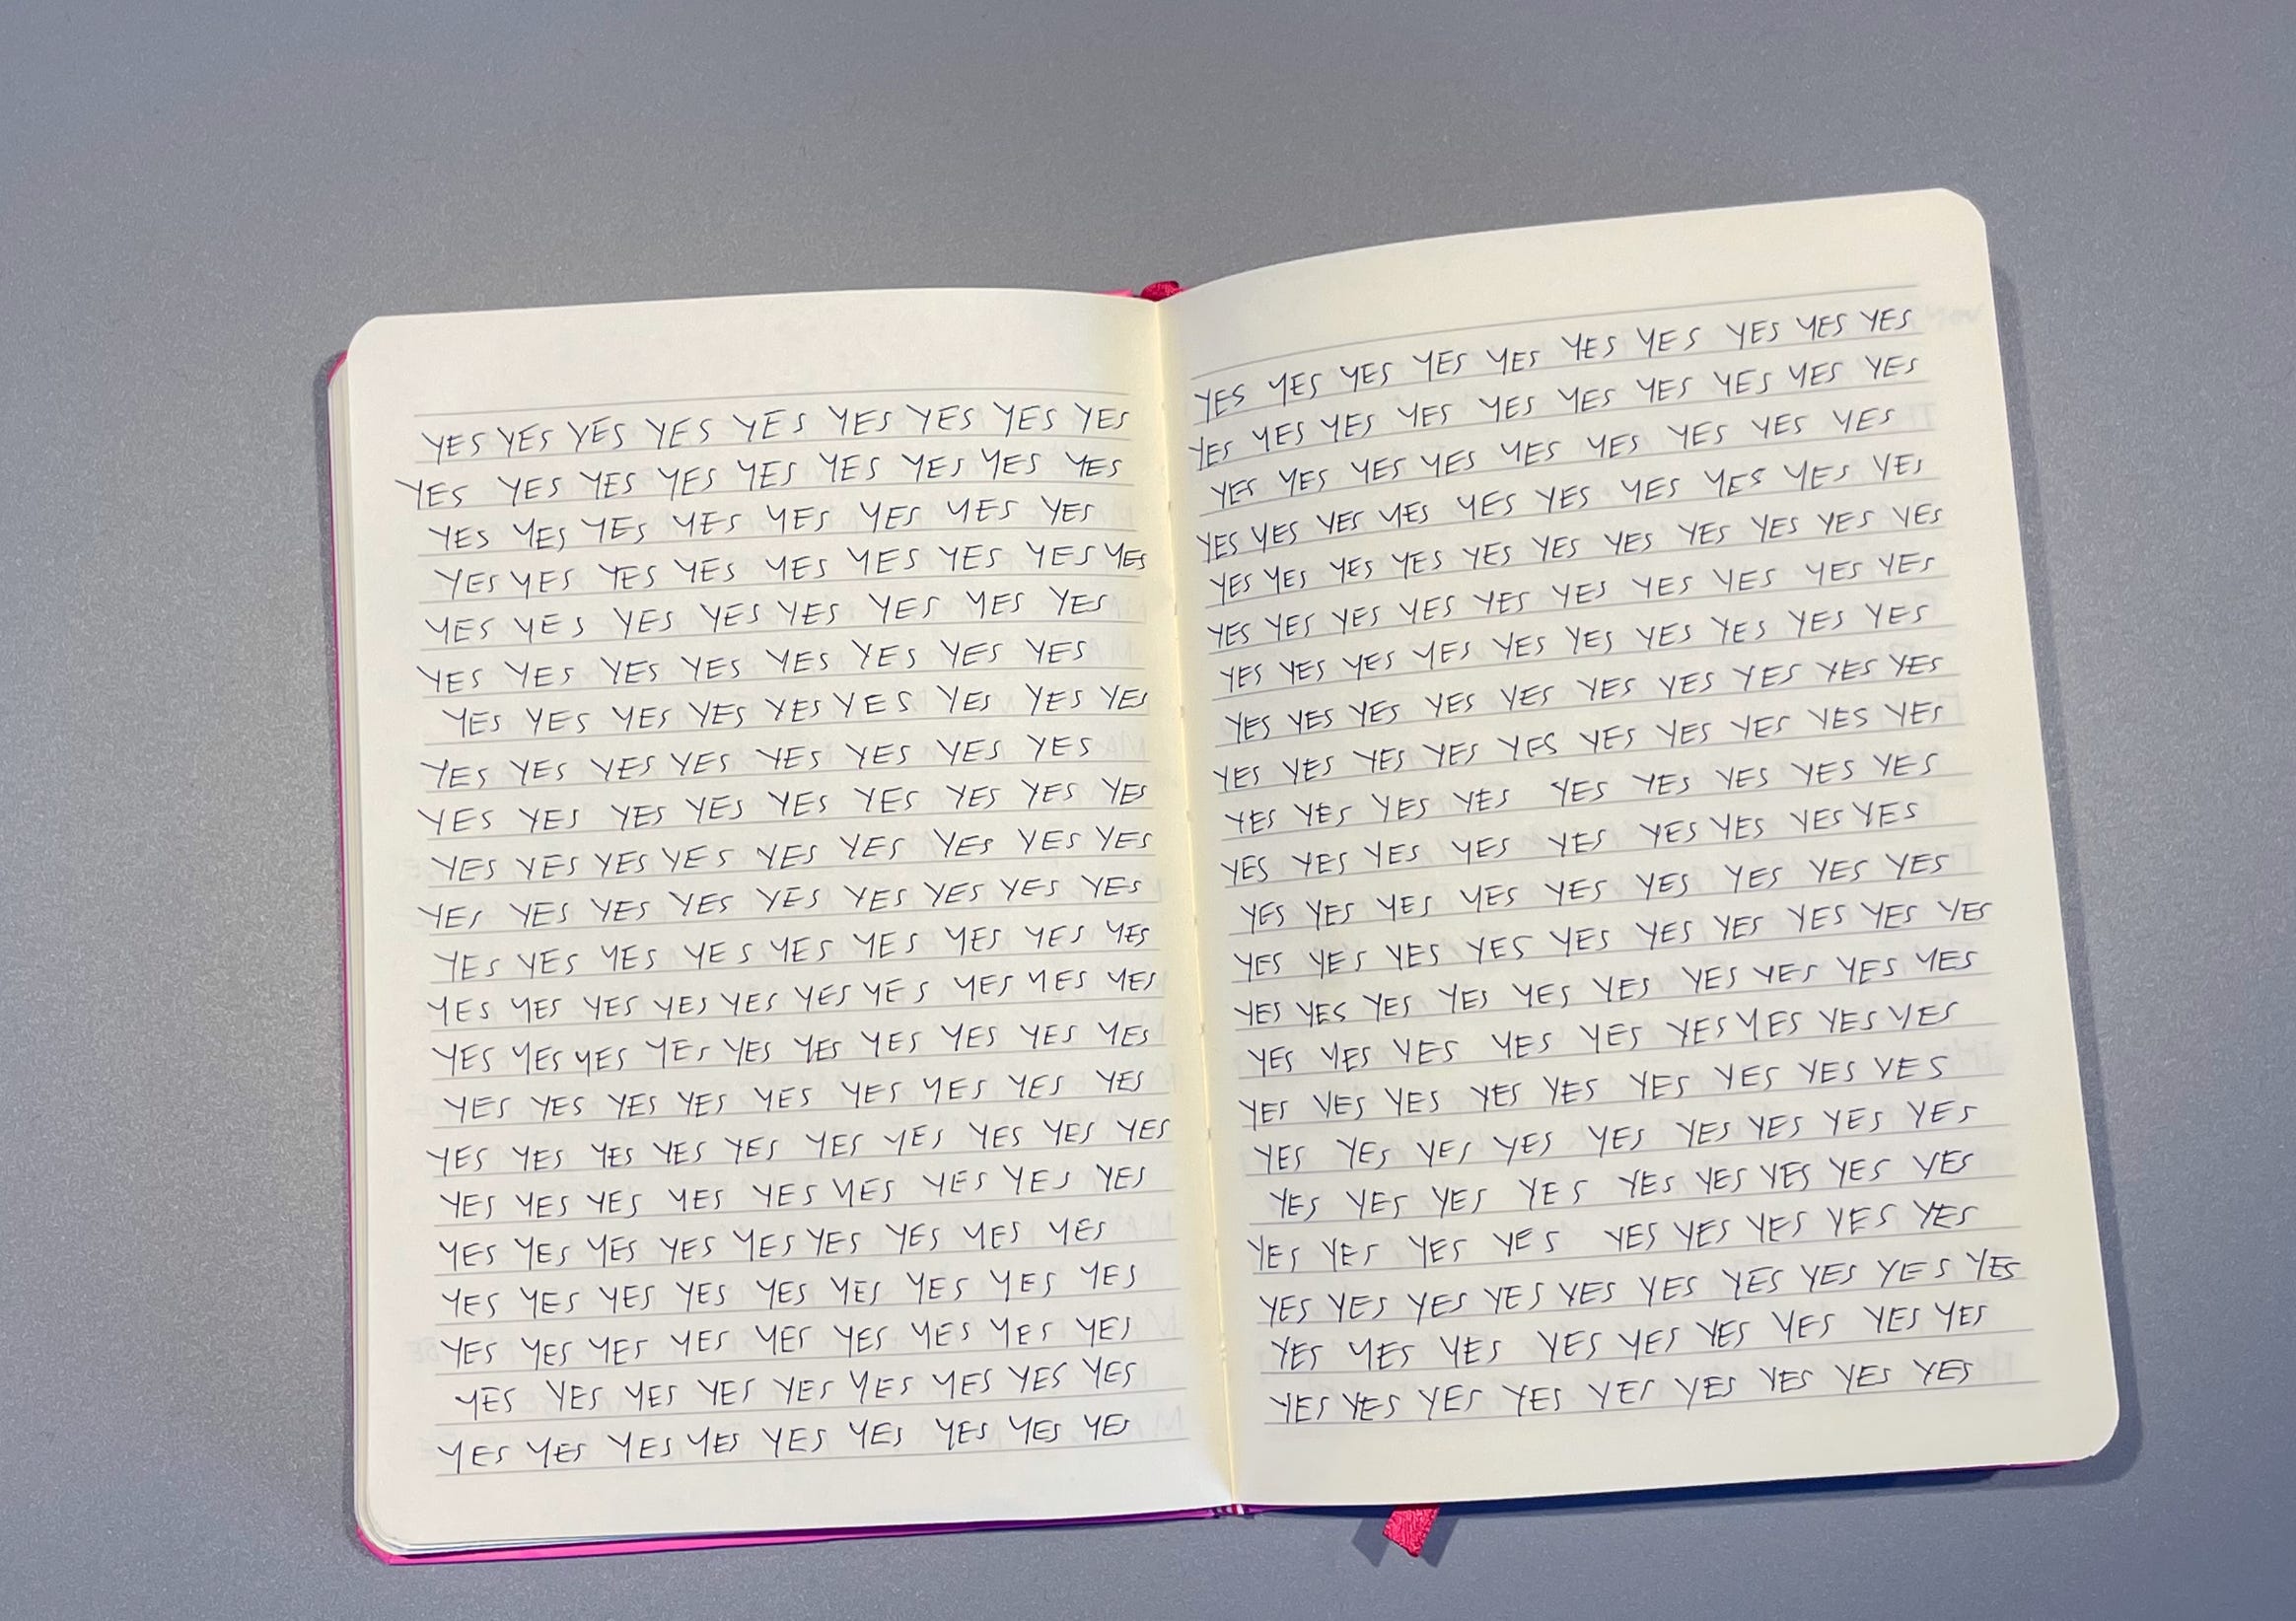 YES YES YES YES YES YES YES YES YES
YES YES YES YES YES YES YES YES YES
YES YES YES YES YES YES YES YES
YES YES YES YES YES YES YES YES YES
YES YES YES YES YES YES YES YES
YES YES YES YES YES YES YES YES
YES YES YES YES YES YES YES YES YES
YES YES YES YES YES YES YES YES
YES YES YES YES YES YES YES YES YES
YES YES YES YES YES YES YES YES YES
YES YES YES YES YES YES YES YES YES
YES YES YES YES YES YES YES YES YES
YES YES YES YES YES YES YES YES YES YES
YES YES YES YES YES YES YES YES YES YES
YES YES YES YES YES YES YES YES YES
YES YES YES YES YES YES YES YES YES YES
YES YES YES YES YES YES YES YES YES
YES YES YES YES YES YES YES YES YES
YES YES YES YES YES YES YES YES YES
YES YES YES YES YES YES YES YES YES
YES YES YES YES YES YES YES YES YES
YES YES YES YES YES YES YES YES YES
YES YES YES YES YES YES YES YES YES YES
YES YES YES YES YES YES YES YES YES YES
YES YES YES YES YES YES YES YES YES
YES YES YES YES YES YES YES YES YES YES
YES YES YES YES YES YES YES YES YES YES YES
YES YES YES YES YES YES YES YES YES YES
YES YES YES YES YES YES YES YES YES YES
YES YES YES YES YES YES YES YES YES YES
YES YES YES YES YES YES YES YES YES YES
YES YES YES YES YES YES YES YES YES
YES YES YES YES YES YES YES YES YES
YES YES YES YES YES YES YES YES YES
YES YES YES YES YES YES YES YES YES YES
YES YES YES YES YES YES YES YES YES YES
YES YES YES YES YES YES YES YES YES
YES YES YES YES YES YES YES YES YES
YES YES YES YES YES YES YES YES YES
YES YES YES YES YES YES YES YES YES
YES YES YES YES YES YES YES YES YES
YES YES YES YES YES YES YES YES YES YES
YES YES YES YES YES YES YES YES YES
YES YES YES YES YES YES YES YES YES